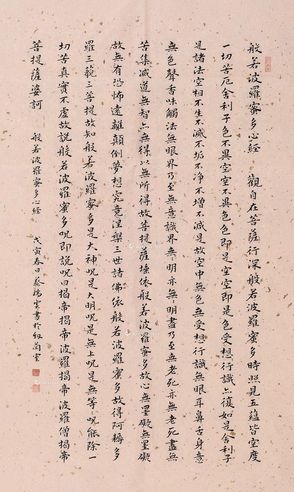 般若波羅蜜多心經 觀自在菩薩行深般若波羅蜜多時照見五蘊皆空度
一切苦厄舍利子色不異空空不異色色即是空空即是色受想行識亦復如是舍利子
是諸法空相不生不滅不垢不净不增不減是故空中無色無受想行識無眼耳鼻舌身意
無色聲香味觸法無眼界乃至無意識界無無明亦無無明盡乃至無老死亦無老死盡無
苦集滅道無智亦無得以無所得故菩提薩埵依般若波羅蜜多故心無罣礙無罣礙
故無有恐怖遠離顛倒夢想究竟涅槃三世諸佛依般若波羅蜜多故得阿耨多
羅三藐三菩提故知般若波羅蜜多是大神呪是大明呪是無上呪是無等呪能除一
切苦真實不虛故説般若波羅蜜多呪即説呪曰揭帝揭帝波羅揭帝波羅僧揭帝
菩提薩婆訶 般若波羅蜜多心經 戊寅春日 書於 室